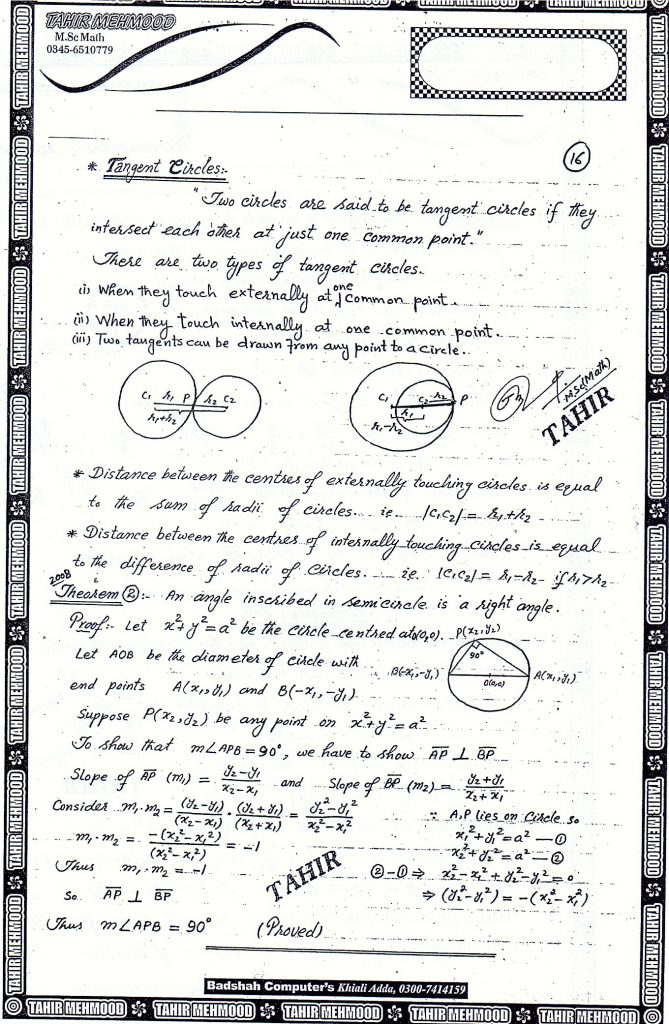 TAHIR MEHMOOD
M.Sc Math
0345-6510779
16
* Tangent Circles:-
"Two circles are said to be tangent circles if they
intersect each other at just one common point."
There are two types of tangent circles.
(i) When they touch externally at one common point.
(ii) When they touch internally at one common point.
(iii) Two tangents can be drawn from any point to a circle.
C₁ r₁ P r₂ C₂
r₁+r₂
C₁ C₂ r₂ P
r₁
r₁-r₂
M.Sc(Math)
TAHIR
* Distance between the centres of externally touching circles is equal
to the sum of radii of circles. ie |C₁C₂| = r₁+r₂
* Distance between the centres of internally touching circles is equal
to the difference of radii of circles. ie. |C₁C₂| = r₁-r₂ if r₁>r₂
2008
Theorem ②:- An angle inscribed in semicircle is a right angle.
Proof:- Let x²+y²=a² be the circle centred at (0,0). P(x₂,y₂)
90°
Let AOB be the diameter of circle with B(-x₁,-y₁) O(0,0) A(x₁,y₁)
end points A(x₁,y₁) and B(-x₁,-y₁)
Suppose P(x₂,y₂) be any point on x²+y²=a²
To show that m∠APB=90°, we have to show AP ⊥ BP
Slope of AP (m₁) = (y₂-y₁)/(x₂-x₁) and Slope of BP (m₂) = (y₂+y₁)/(x₂+x₁)
Consider m₁.m₂ = (y₂-y₁)/(x₂-x₁) . (y₂+y₁)/(x₂+x₁) = (y₂²-y₁²)/(x₂²-x₁²) ∵ A,P lies on circle so
x₁²+y₁²=a² —①
m₁.m₂ = -(x₂²-x₁²)/(x₂²-x₁²) = -1 x₂²+y₂²=a² —②
Thus m₁.m₂ = -1 ②-① ⇒ x₂²-x₁²+y₂²-y₁²=0
TAHIR
So AP ⊥ BP ⇒ (y₂²-y₁²) = -(x₂²-x₁²)
Thus m∠APB = 90° (Proved)
Badshah Computer's Khiali Adda, 0300-7414159
TAHIR MEHMOOD TAHIR MEHMOOD TAHIR MEHMOOD TAHIR MEHMOOD TAHIR MEHMOOD